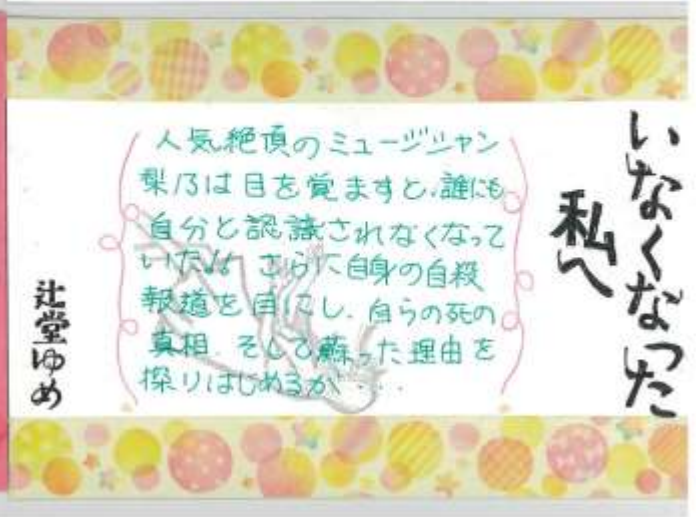 いなくなった
私へ
人気絶頂のミュージシャン
梨乃は目を覚ますと、誰にも
自分と認識されなくなって
いた!! さらに自身の自殺
報道を目にし、自らの死の
真相、そして蘇った理由を
探りはじめるが・・・
辻堂ゆめ